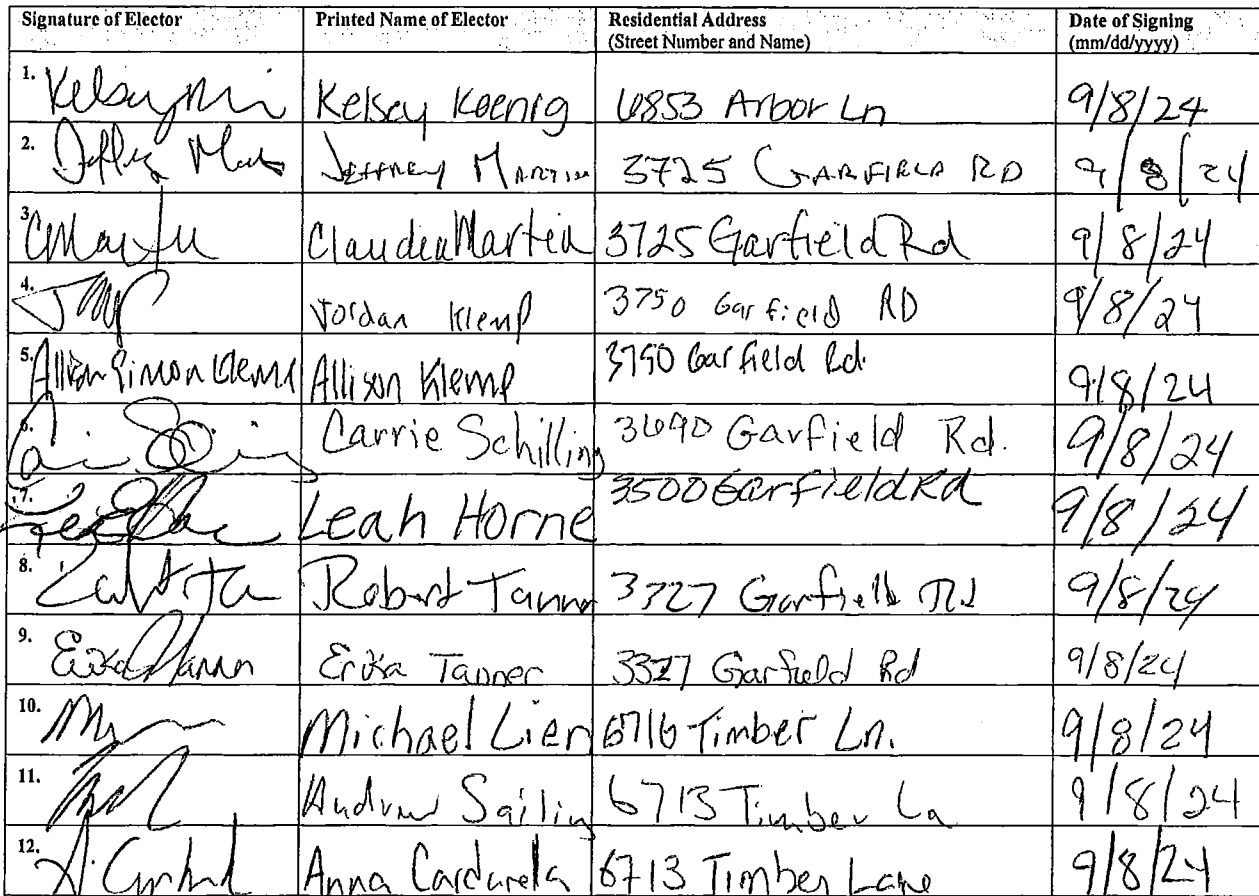 Signature of Elector Printed Name of Elector Residential Address Date of Signing
(Street Number and Name) (mm/dd/yyyy)
1. Kelsey Koenig 6853 Arbor Ln 9/8/24
2. Jeffrey Martin 3725 GARFIELD RD 9/8/24
3. CMartin Claudia Martin 3725 Garfield Rd 9/8/24
4. Jordan Klemp 3750 Garfield RD 9/8/24
5. Allison Simon Klemp Allison Klemp 3750 Garfield Rd. 9/8/24
6. Carrie Schilling 3690 Garfield Rd. 9/8/24
7. Leah Horne 3500 Garfield Rd 9/8/24
8. Robert Tanner 3727 Garfield Rd 9/8/24
9. Erika Tanner Erika Tanner 3327 Garfield Rd 9/8/24
10. Michael Lien 6716 Timber Ln. 9/8/24
11. Andrew Sailing 6713 Timber Ln 9/8/24
12. Anna Cardarella 6713 Timber Lane 9/8/24